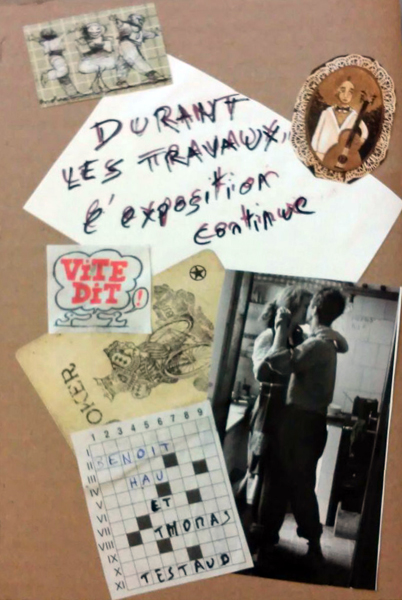 DURANT
LES TRAVAUX,
l'exposition
continue
VITE
DIT!
JOKER
1 2 3 4 5 6 7 8 9
I
II
III
IV
V
VI
VII
VIII
IX
X
XI
BENOIT
HAU
ET
THOMAS
TESTAUD